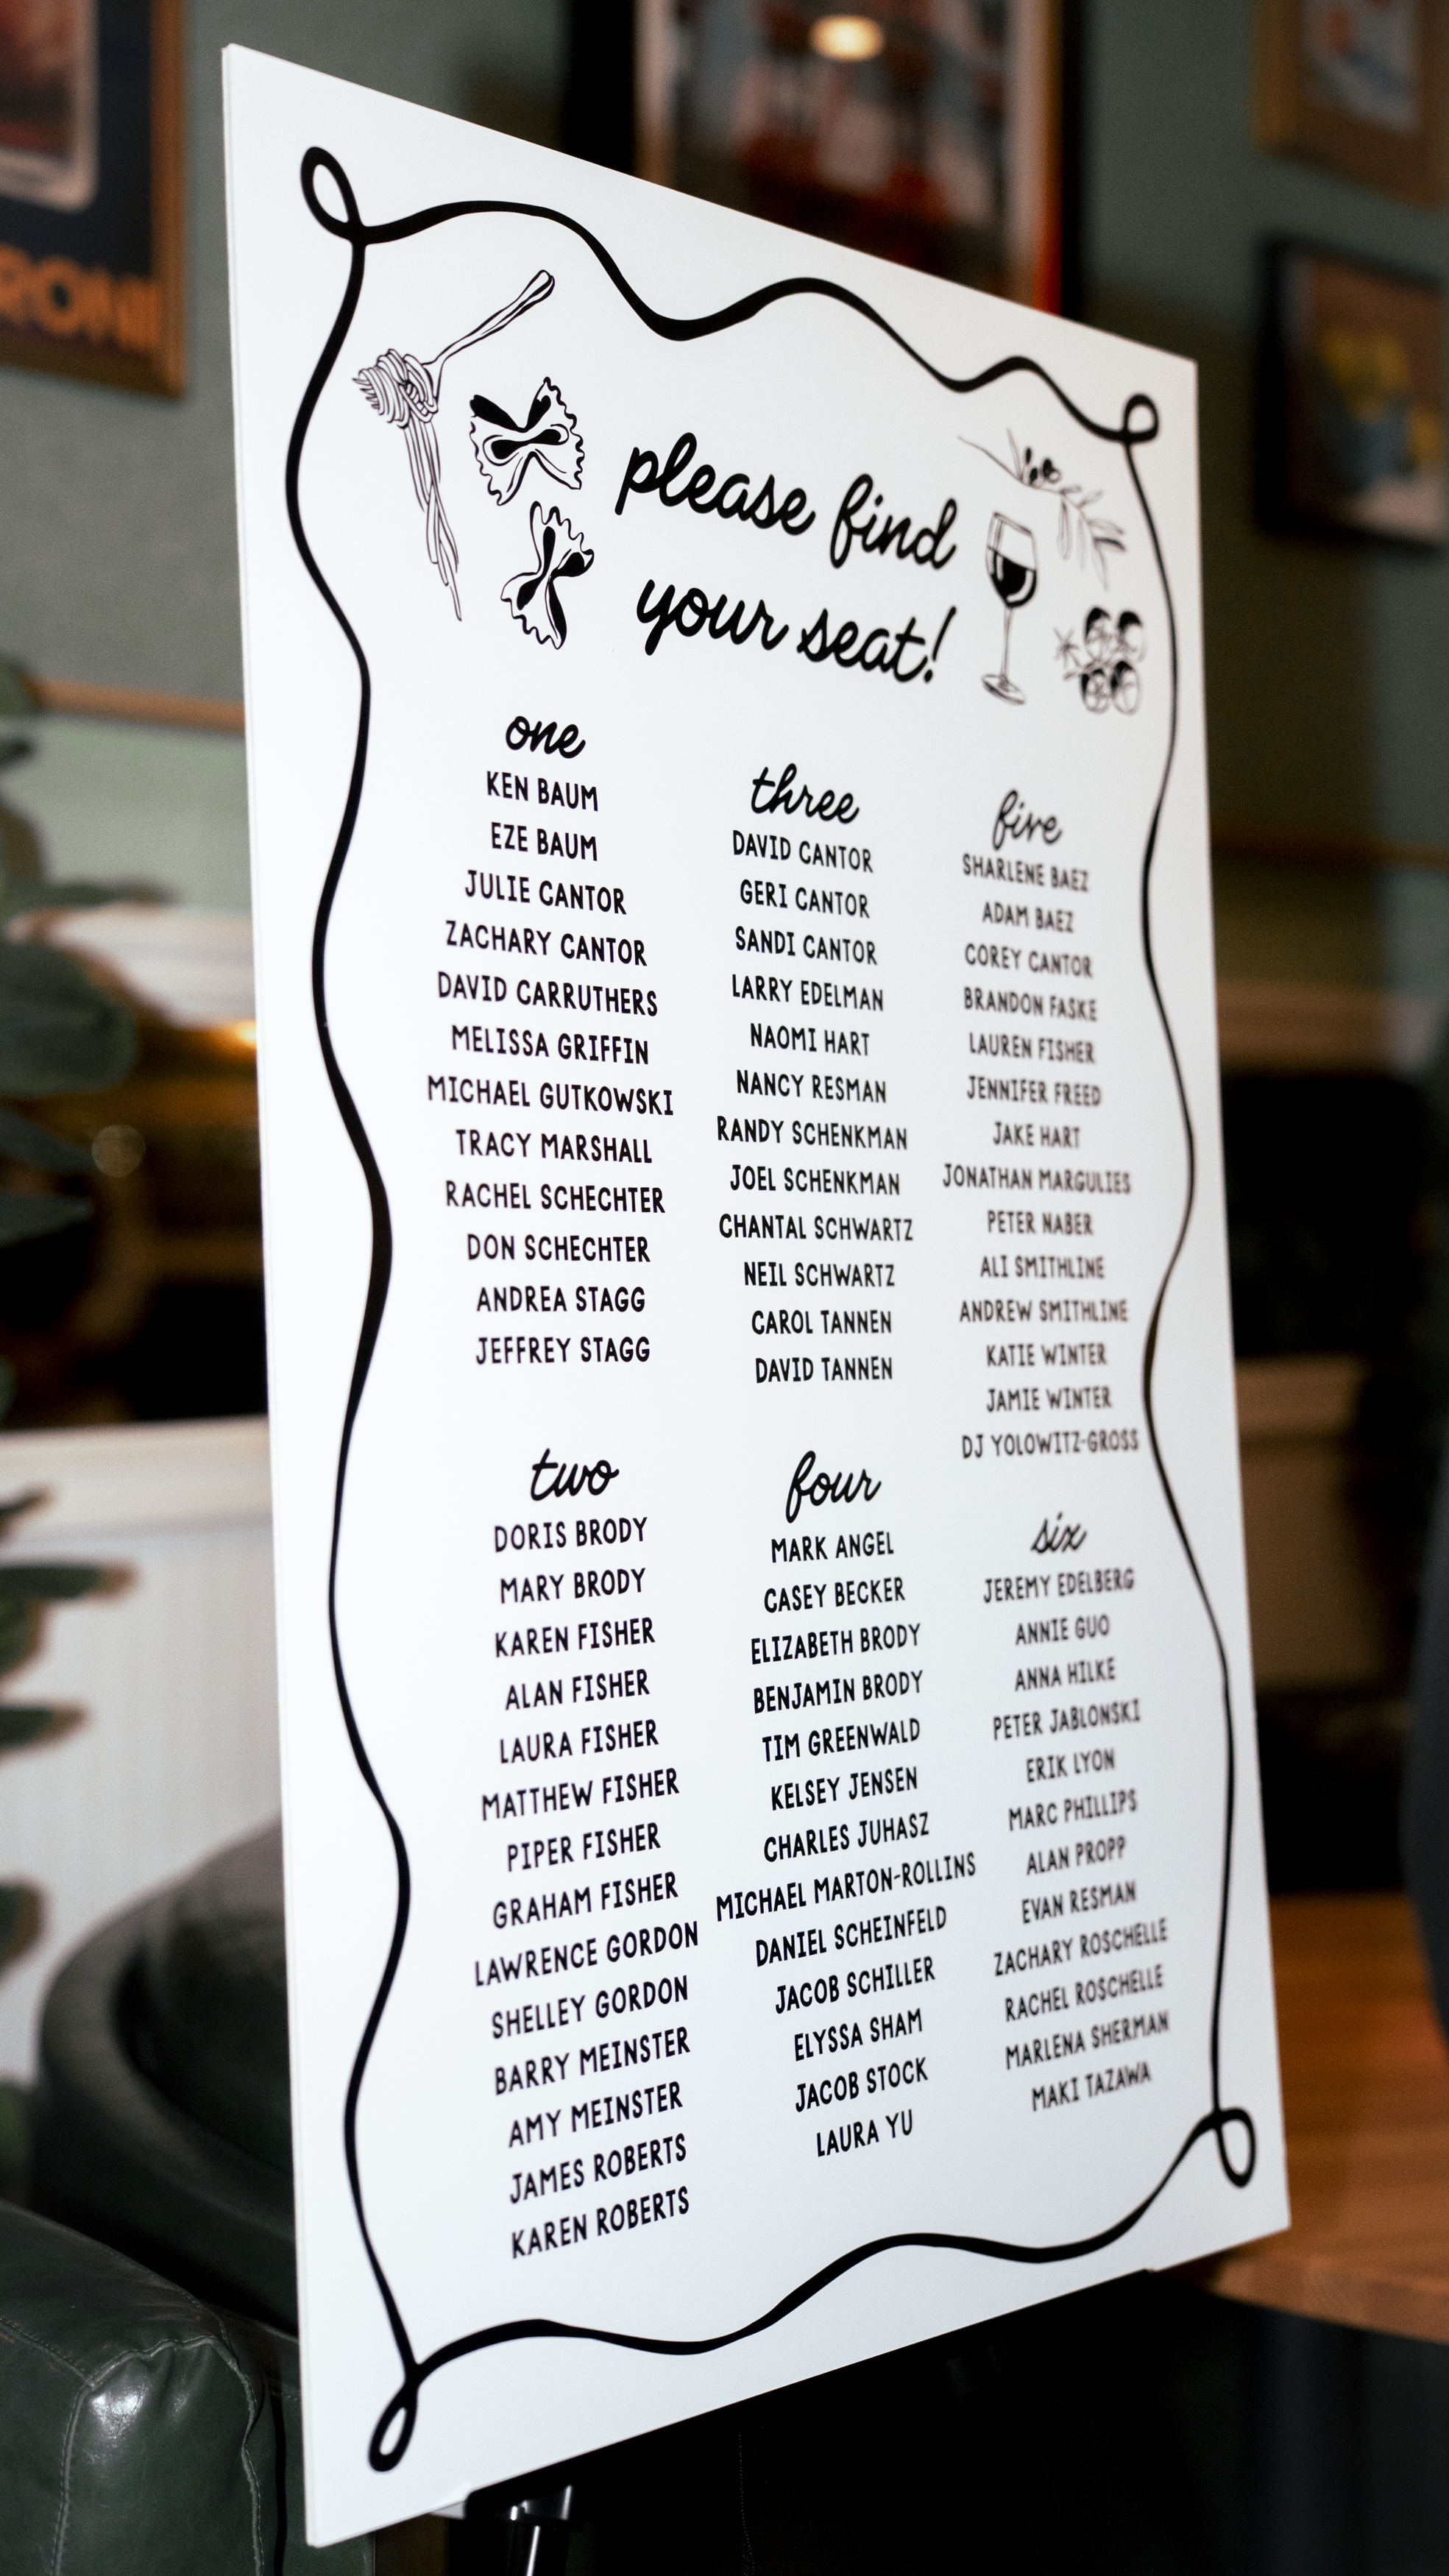 RONI
please find
your seat!
one
KEN BAUM
EZE BAUM
JULIE CANTOR
ZACHARY CANTOR
DAVID CARRUTHERS
MELISSA GRIFFIN
MICHAEL GUTKOWSKI
TRACY MARSHALL
RACHEL SCHECHTER
DON SCHECHTER
ANDREA STAGG
JEFFREY STAGG
two
DORIS BRODY
MARY BRODY
KAREN FISHER
ALAN FISHER
LAURA FISHER
MATTHEW FISHER
PIPER FISHER
GRAHAM FISHER
LAWRENCE GORDON
SHELLEY GORDON
BARRY MEINSTER
AMY MEINSTER
JAMES ROBERTS
KAREN ROBERTS
three
DAVID CANTOR
GERI CANTOR
SANDI CANTOR
LARRY EDELMAN
NAOMI HART
NANCY RESMAN
RANDY SCHENKMAN
JOEL SCHENKMAN
CHANTAL SCHWARTZ
NEIL SCHWARTZ
CAROL TANNEN
DAVID TANNEN
four
MARK ANGEL
CASEY BECKER
ELIZABETH BRODY
BENJAMIN BRODY
TIM GREENWALD
KELSEY JENSEN
CHARLES JUHASZ
MICHAEL MARTON-ROLLINS
DANIEL SCHEINFELD
JACOB SCHILLER
ELYSSA SHAM
JACOB STOCK
LAURA YU
five
SHARLENE BAEZ
ADAM BAEZ
COREY CANTOR
BRANDON FASKE
LAUREN FISHER
JENNIFER FREED
JAKE HART
JONATHAN MARGULIES
PETER NABER
ALI SMITHLINE
ANDREW SMITHLINE
KATIE WINTER
JAMIE WINTER
DJ YOLOWITZ-GROSS
six
JEREMY EDELBERG
ANNIE GUO
ANNA HILKE
PETER JABLONSKI
ERIK LYON
MARC PHILLIPS
ALAN PROPP
EVAN RESMAN
ZACHARY ROSCHELLE
RACHEL ROSCHELLE
MARLENA SHERMAN
MAKI TAZAWA